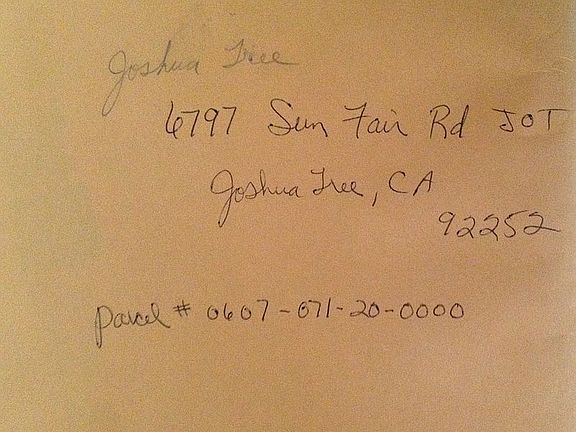 Joshua Tree
6797 Sun Fair Rd JOT
Joshua Tree, CA
92252
parcel # 0607-071-20-0000